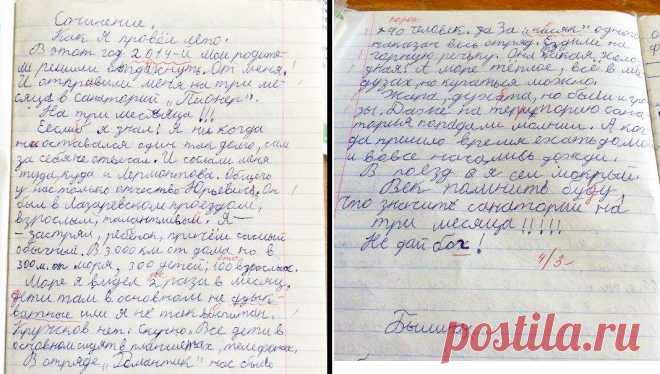 Сочинение.
Как я провёл лето.
В этот год 2014-й мои родите-
ли решили отдахнуть. От меня.
И отправили меня на три ме-
сяца в санаторий „Пионер".
На три месяяца!!!
Еслиб я знал! Я ни когда
не оставался один так долго, сам
за себя не отвечал. И сослали меня
туда, куда и Лермонтова. Общего
у нас только отчество Юрьевичь. Он
был в Лазаревском проездом,
взрослым, талантливым. Я-
- застрял, ребёнок, причём самый
обычный. В 3.000 км. от дома но в
300 м. от моря, 300 детей, 100 взрослых.
Море я видел 2 раза в месяц.
Дети там в основном не
ватные или я не так воспитан.
Кружков нет. Скучно. Все дети в
основном сидят в планшетах, телефонах.
В отряде „Романтик" нас было
>40 человек. За „косяк" одного
наказан весь отряд. Ездили на
горную речьку. Она
зная! А море тёплое, всё в ме-
дузах, но купаться можно.
Жара, духота, но были и гро-
зы. Даже на территорию сана-
тория попадали молнии. А ког-
да пришло время ехать домой
и вовсе начались дожди.
В поезд я сел мокрый.
Век помнить буду,
что значить санаторий на
три месяца!!!!!
Не дай бох!
4/3-